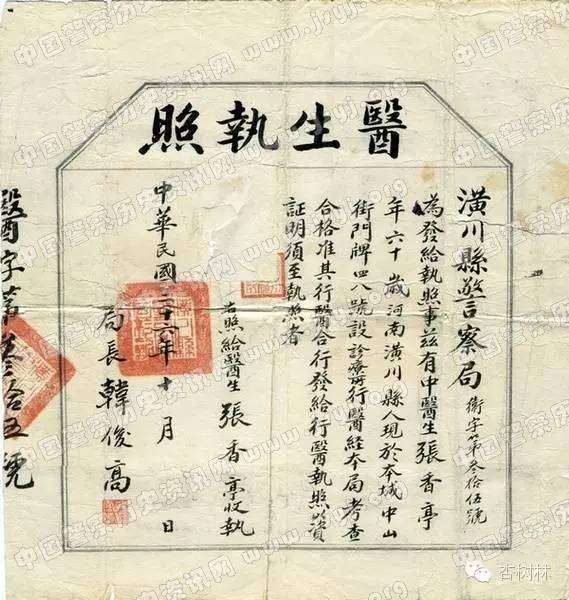 醫生執照
潢川縣警察局 衛字第叁拾伍號
為發給執照事茲有中醫生張香亭
年六十歲河南潢川縣人現於本城中山
街門牌四八號設診療所行醫經本局考查
合格准其行醫合行發給行醫執照以資
証明須至執照者
右照給醫生張香亭收執
中華民國三十六年十月 日
局長韓俊高
醫字第叁拾五號
中国警察历史资讯网 www.jyj.org
杏树林